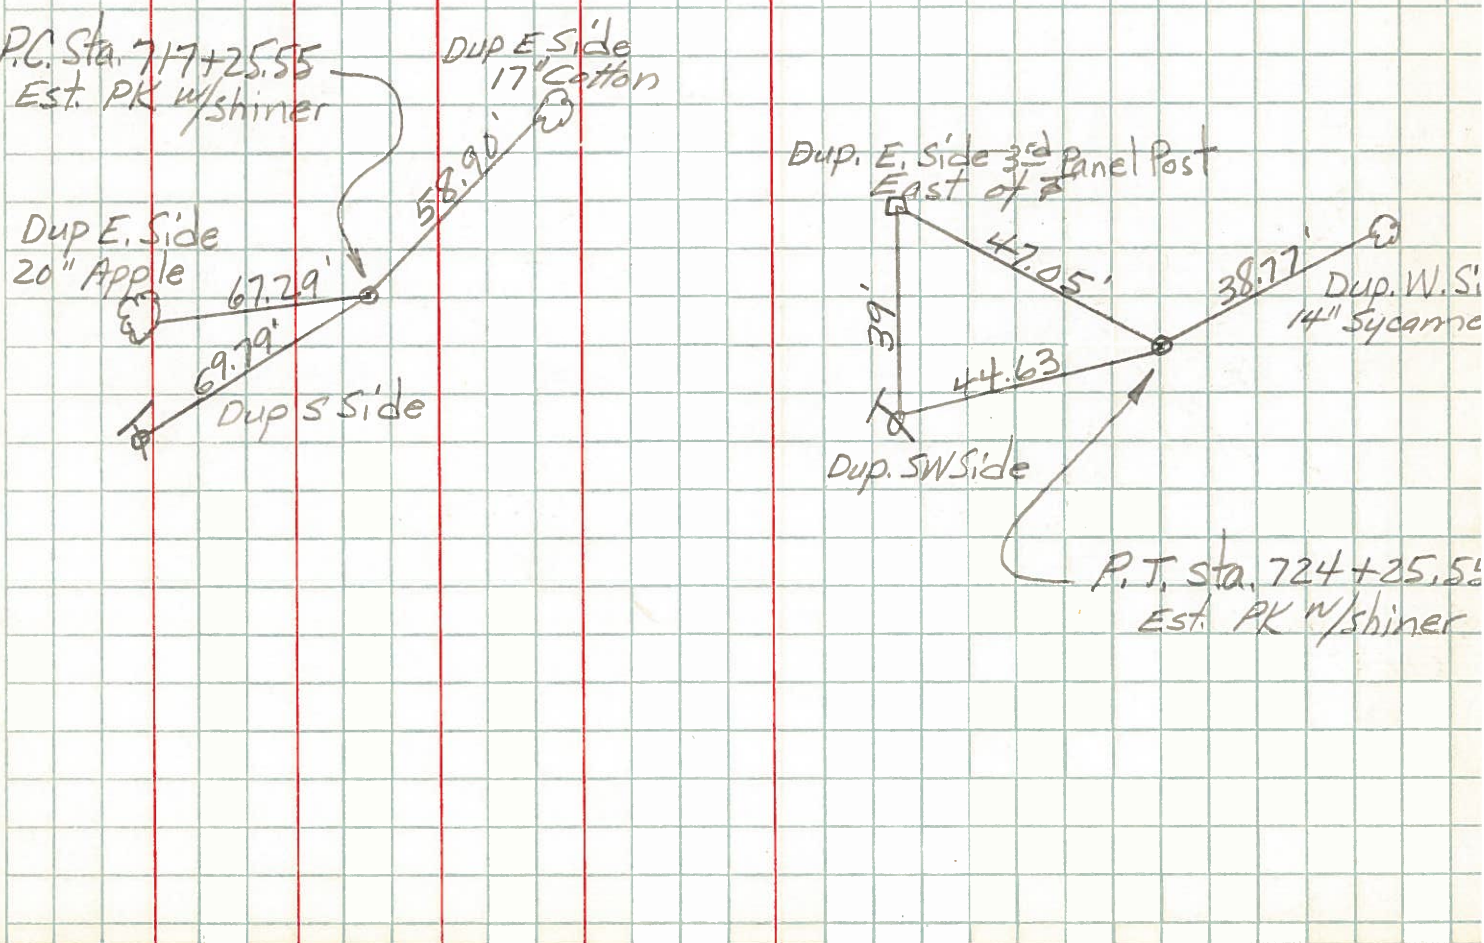 P.C. Sta. 717+25.55
Est. PK w/shiner
Dup E. Side
17" Cotton
58.90'
Dup E. Side
20" Apple
67.29'
69.79'
Dup S Side
Dup. E. Side 3rd Panel Post
East of
47.05'
38.77'
39'
Dup. W. Si
14" Sycamo
44.63
Dup. SW Side
P.T. Sta. 724+25.55
Est. PK w/shiner